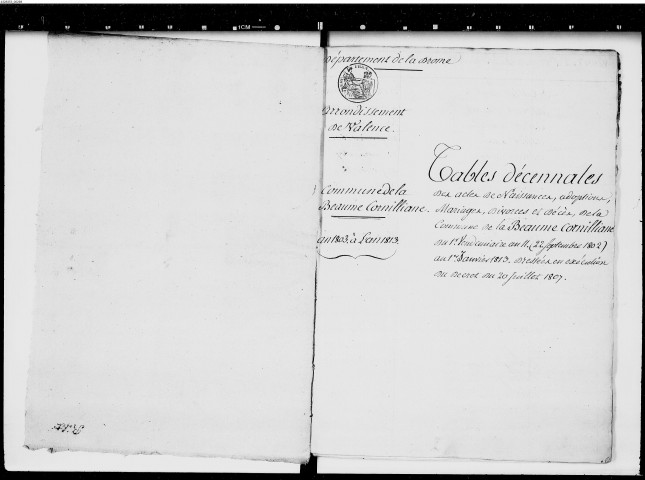 Département de la Drome
Arrondissement
De Valence.
Commune de la
Beaume Cornilliane.
an 1803. à l'an 1813.
Tables décennales
Des actes De Naissances, adoptions,
Mariages, Divorces et Décès, De la
Commune de la Beaume Cornilliane
Du 1er. Vendémiaire an 11. (22 Septembre 1802)
au 1er. Janvier 1813. Dressées en exécution
Du Decret Du 20 Juillet 1807.
1CM